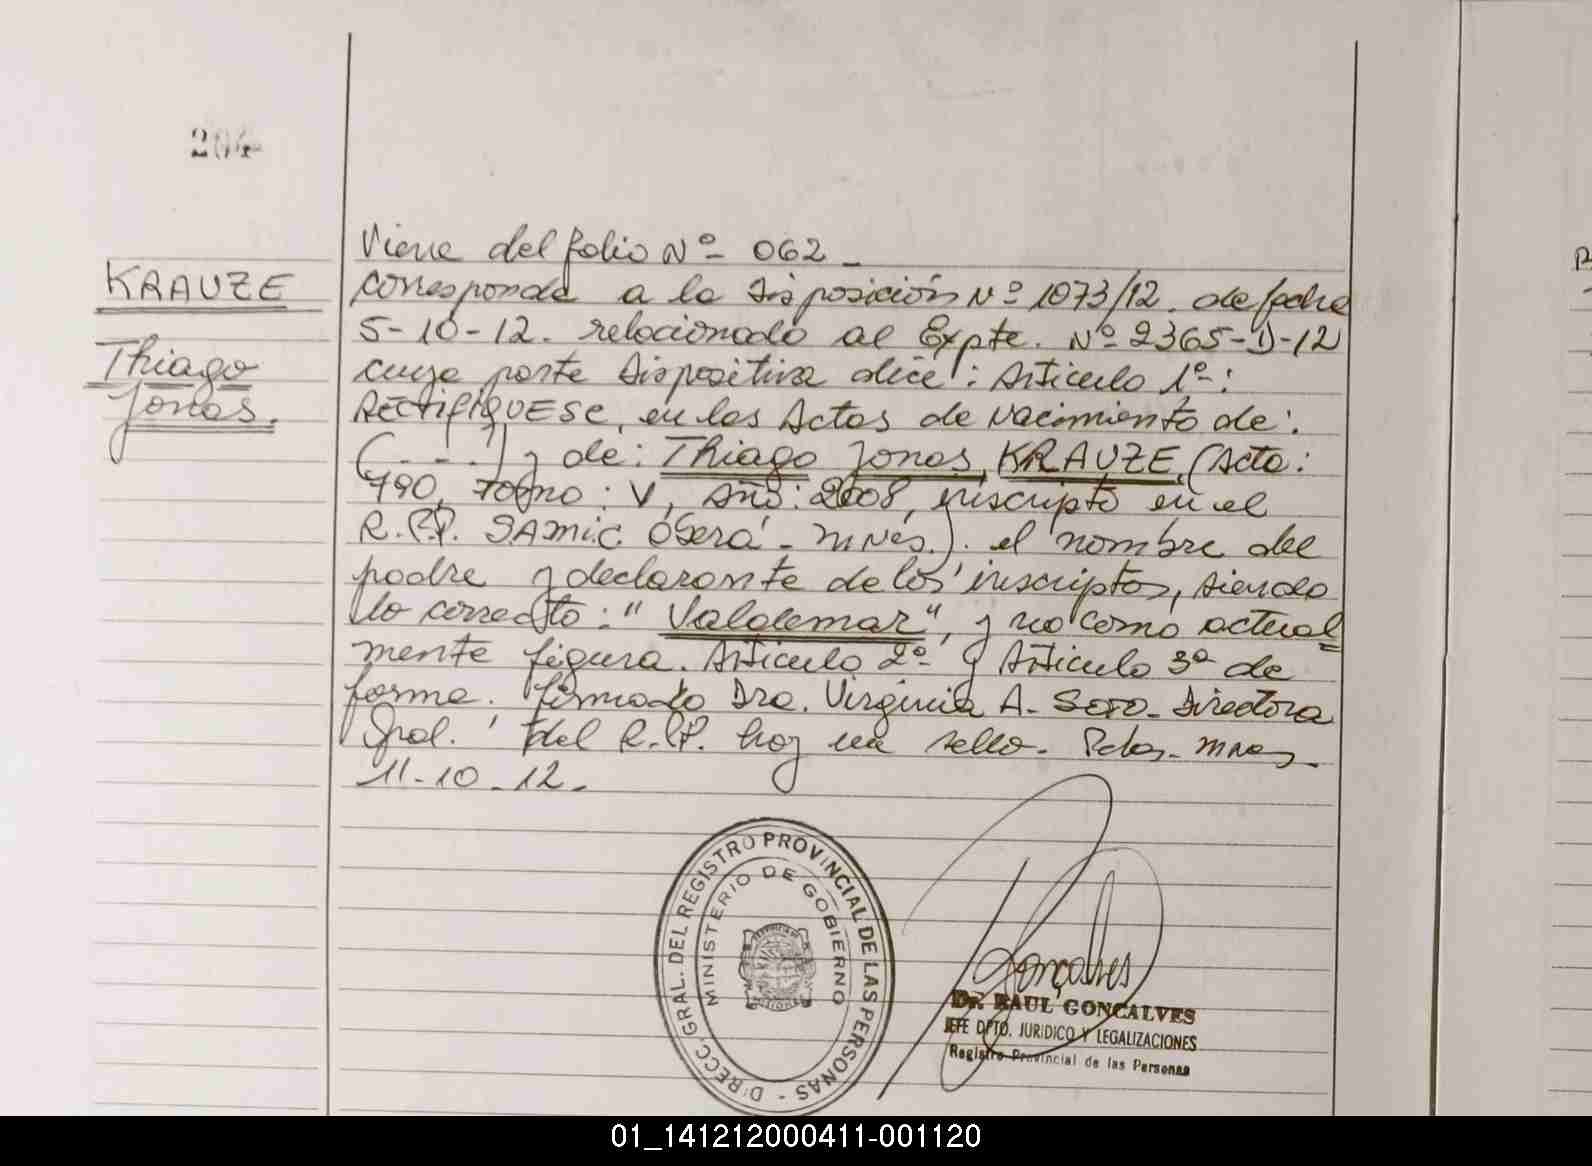 204
KRAUZE
Thiago
Jonas.
Viene del folio Nº 062 -
corresponde a la Disposición Nº 1073/12. de fecha
5-10-12. relacionado al Expte. Nº 2365-D-12
cuya parte Dispositiva dice: Artículo 1º:
RECTIFIQUESE, en las Actas de Nacimiento de:
(- - - -) y de: Thiago Jonas, KRAUZE, (Acta:
790, Tomo: V, Año: 2008, inscripto en el
R.P.P. SAMIC Oberá - Mnes.). el nombre del
padre y declarante de los inscriptos, siendo
lo correcto: "Valdemar", y no como actual=
mente figura. Artículo 2º y Artículo 3º de
forma. firmado Dra. Virginia A. Soto - Directora
Gral. del R.P.P. hay un sello. Pdas. - Mnes -
11-10-12.
DIRECC. GRAL. DEL REGISTRO PROVINCIAL DE LAS PERSONAS -
MINISTERIO DE GOBIERNO
Gonçalves
Dr. RAUL GONCALVES
JEFE DPTO. JURIDICO Y LEGALIZACIONES
Registro Provincial de las Personas
01_141212000411-001120